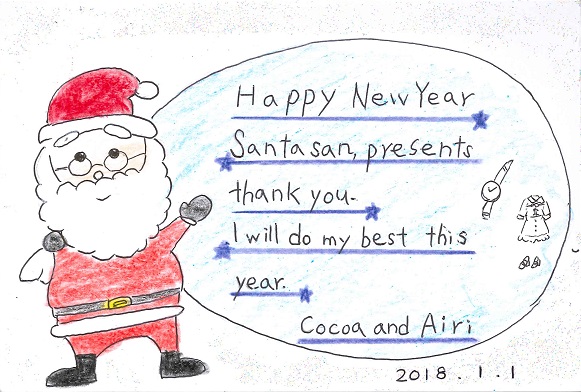 Happy New Year
Santa san, presents
thank you.
I will do my best this
year.
Cocoa and Airi
2018.1.1